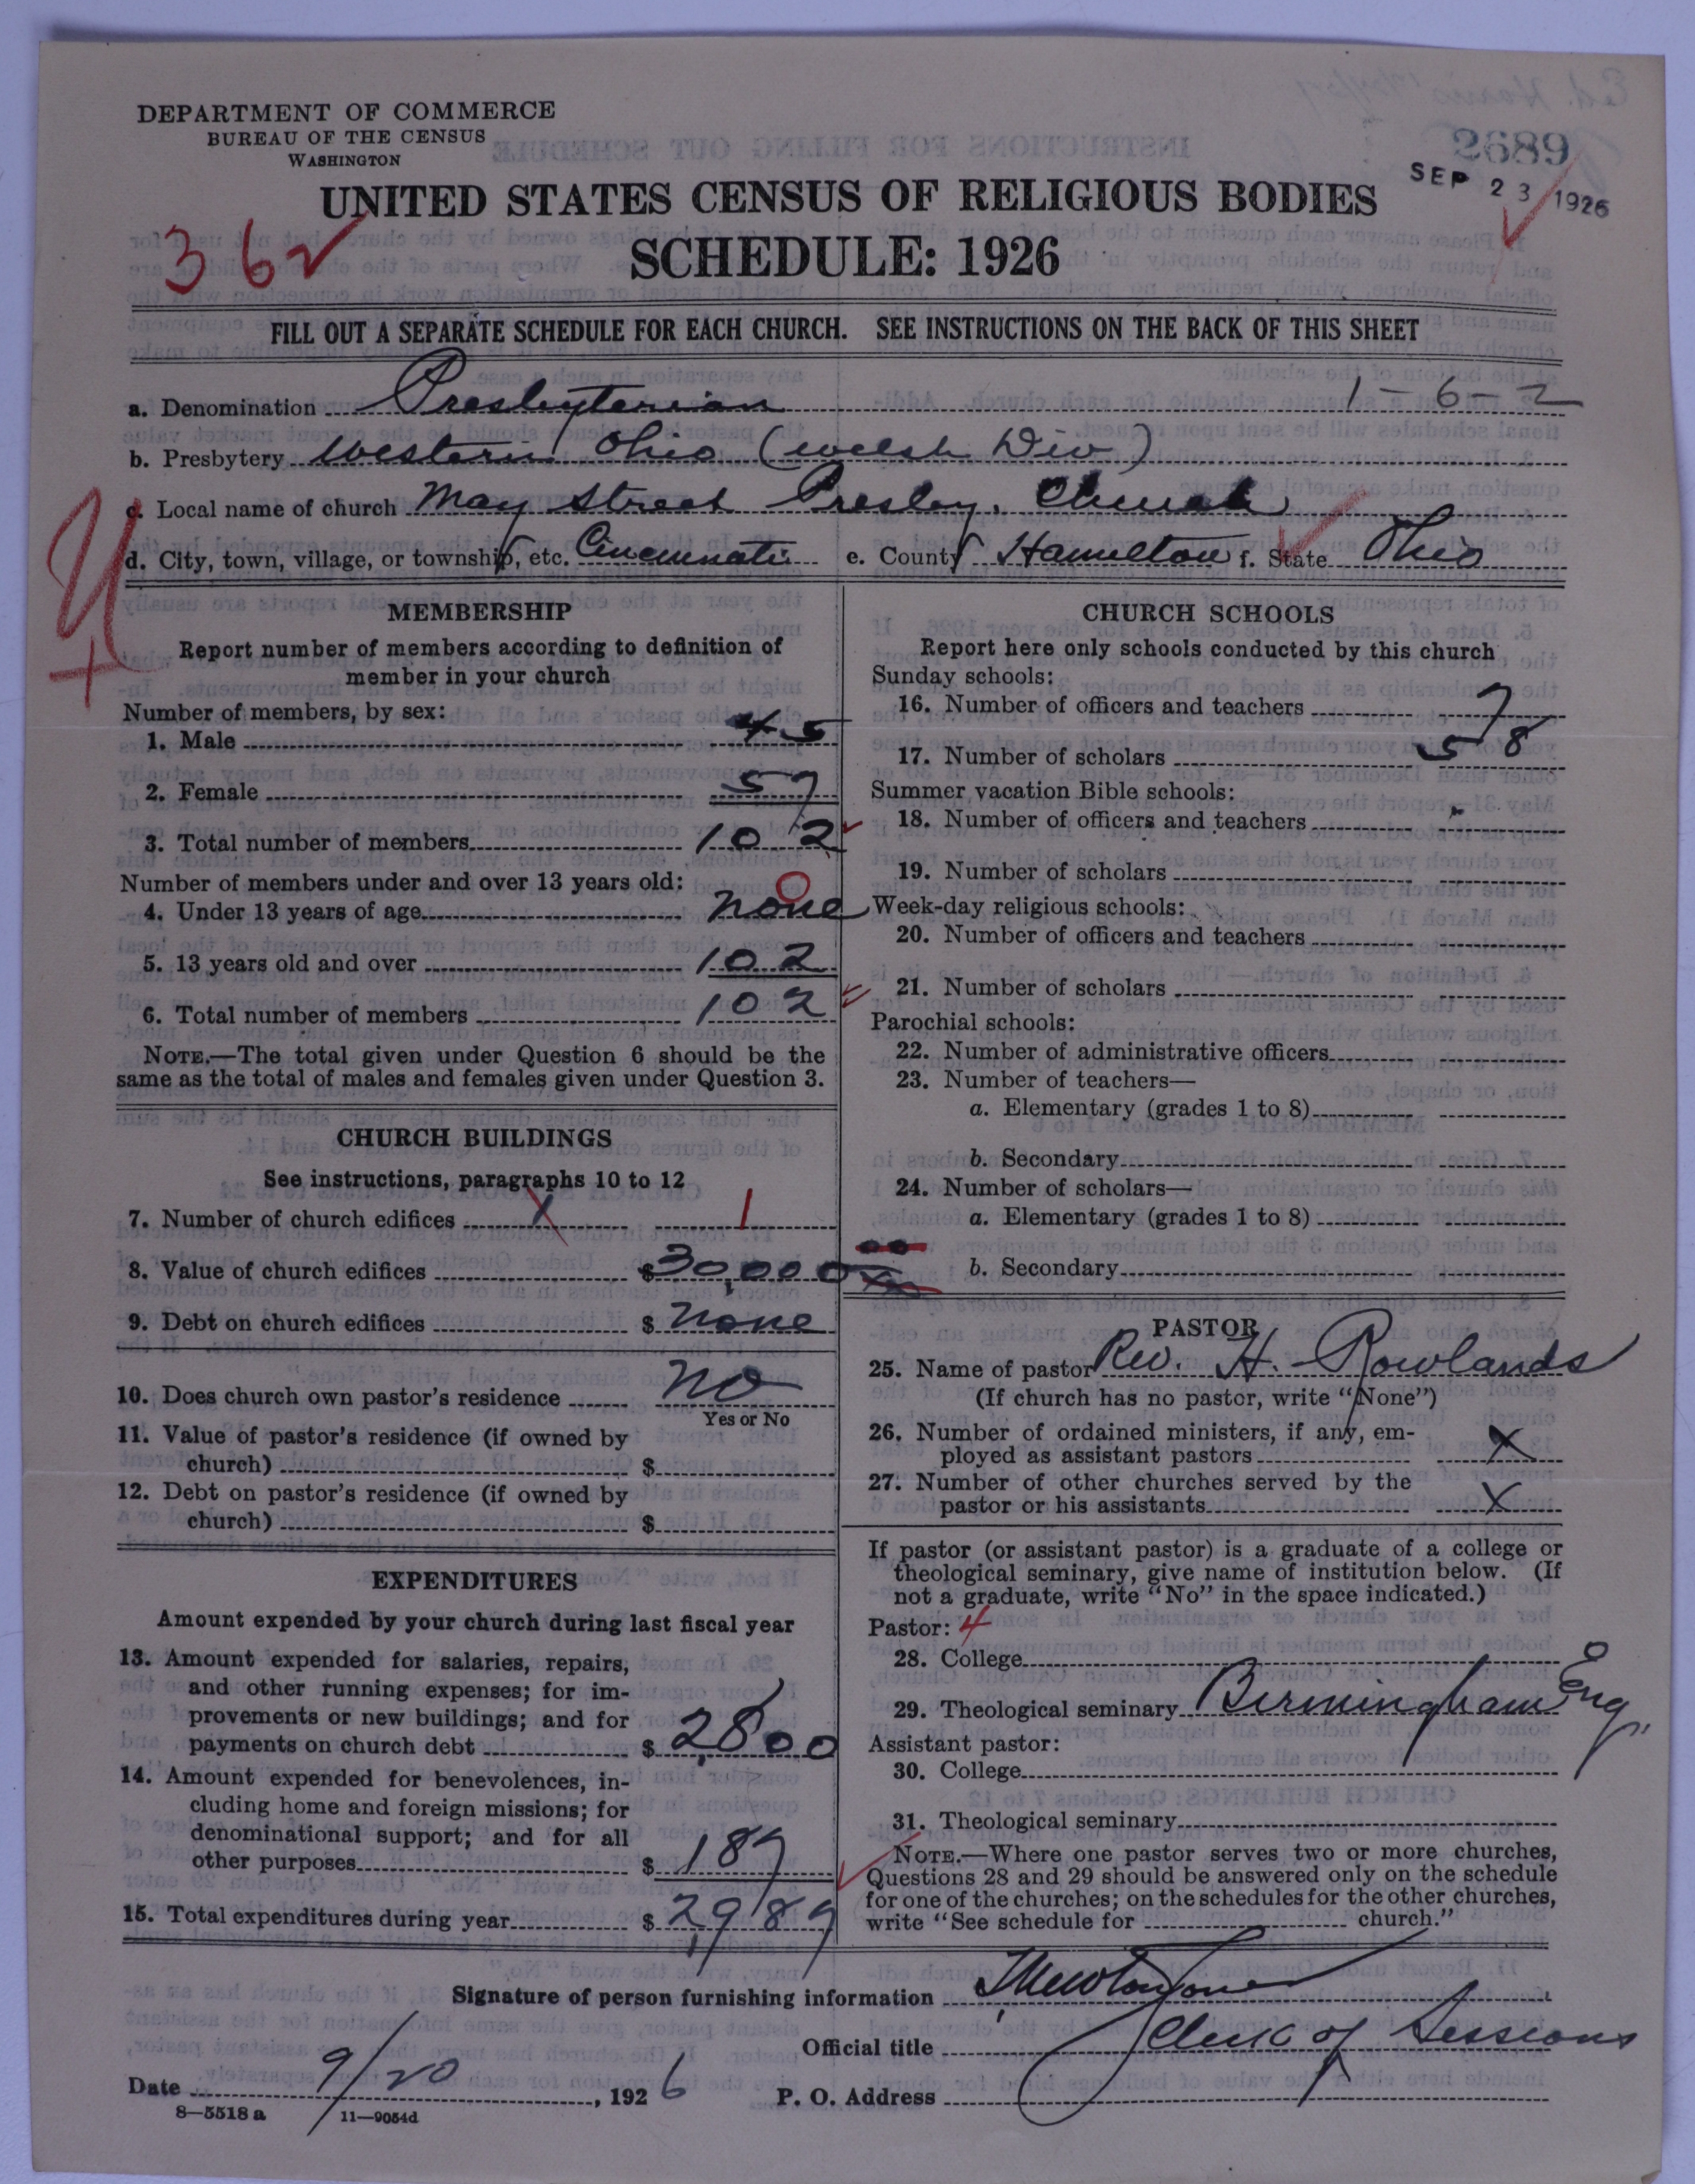 DEPARTMENT OF COMMERCE
BUREAU OF THE CENSUS
WASHINGTON
2689
SEP 23 1926
UNITED STATES CENSUS OF RELIGIOUS BODIES
SCHEDULE: 1926
362
FILL OUT A SEPARATE SCHEDULE FOR EACH CHURCH. SEE INSTRUCTIONS ON THE BACK OF THIS SHEET
a. Denomination Presbyterian 1-6-2
b. Presbytery Western Ohio (Welsh Div)
c. Local name of church May Street Presby. Church
d. City, town, village, or township, etc. Cincinnati e. County Hamilton f. State Ohio
MEMBERSHIP
Report number of members according to definition of
member in your church
Number of members, by sex:
1. Male 45
2. Female 57
3. Total number of members 102
Number of members under and over 13 years old:
4. Under 13 years of age none 0
5. 13 years old and over 102
6. Total number of members 102
NOTE.—The total given under Question 6 should be the
same as the total of males and females given under Question 3.
CHURCH BUILDINGS
See instructions, paragraphs 10 to 12
7. Number of church edifices 1 1
8. Value of church edifices $30,000
9. Debt on church edifices $ none
10. Does church own pastor's residence no
Yes or No
11. Value of pastor's residence (if owned by
church) $
12. Debt on pastor's residence (if owned by
church) $
EXPENDITURES
Amount expended by your church during last fiscal year
13. Amount expended for salaries, repairs,
and other running expenses; for im-
provements or new buildings; and for
payments on church debt $ 2,800
14. Amount expended for benevolences, in-
cluding home and foreign missions; for
denominational support; and for all
other purposes $ 189
15. Total expenditures during year $ 2,989
CHURCH SCHOOLS
Report here only schools conducted by this church
Sunday schools:
16. Number of officers and teachers 7
17. Number of scholars 58
Summer vacation Bible schools:
18. Number of officers and teachers
19. Number of scholars
Week-day religious schools:
20. Number of officers and teachers
21. Number of scholars
Parochial schools:
22. Number of administrative officers
23. Number of teachers—
a. Elementary (grades 1 to 8)
b. Secondary
24. Number of scholars—
a. Elementary (grades 1 to 8)
b. Secondary
PASTOR
25. Name of pastor Rev. H. Rowlands
(If church has no pastor, write "None")
26. Number of ordained ministers, if any, em-
ployed as assistant pastors X
27. Number of other churches served by the
pastor or his assistants X
If pastor (or assistant pastor) is a graduate of a college or
theological seminary, give name of institution below. (If
not a graduate, write "No" in the space indicated.)
Pastor: 4
28. College
29. Theological seminary Birmingham Eng.
Assistant pastor:
30. College
31. Theological seminary
NOTE.—Where one pastor serves two or more churches,
Questions 28 and 29 should be answered only on the schedule
for one of the churches; on the schedules for the other churches,
write "See schedule for church."
Signature of person furnishing information
Official title Clerk of Sessions
Date 9/20, 1926 P. O. Address
8—5518 a 11—9054d